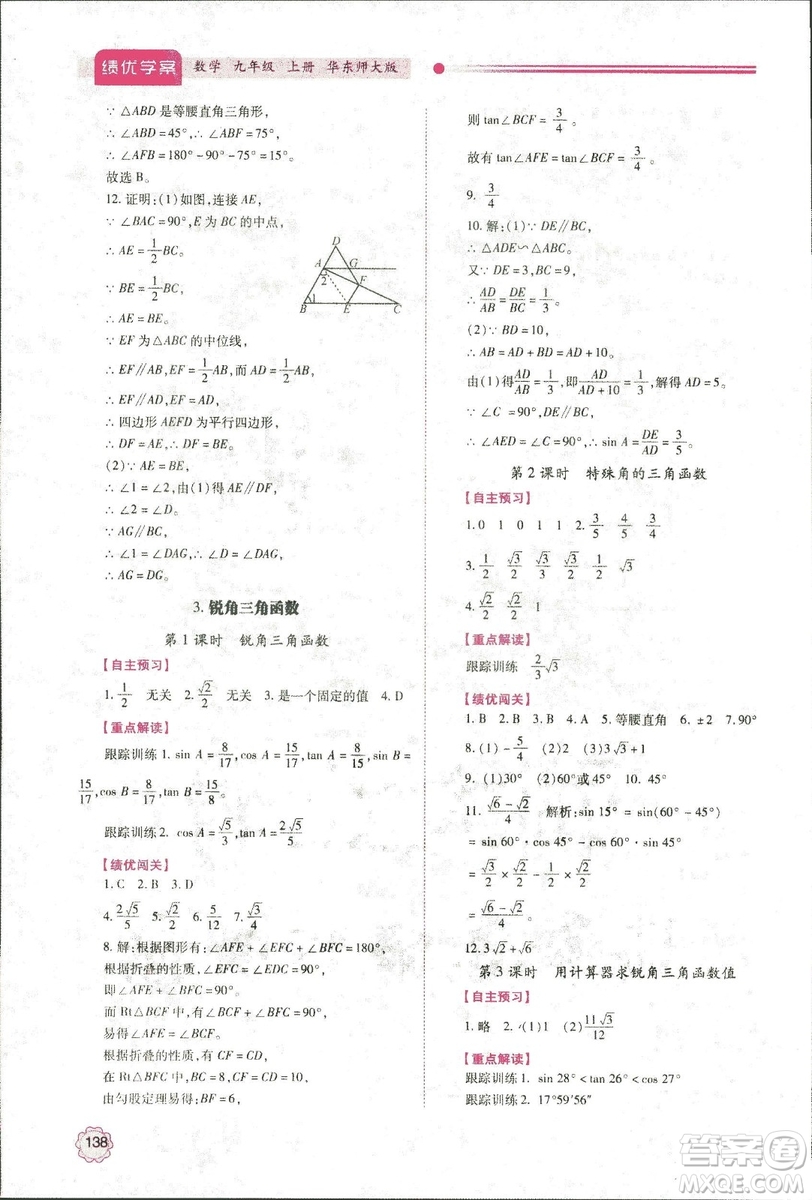 绩优学案 数学 九年级 上册 华东师大版
∵ △ABD 是等腰直角三角形,
∴ ∠ABD=45°,∴ ∠ABF=75°,
∴ ∠AFB=180°-90°-75°=15°。
故选 B。
12. 证明:(1)如图,连接 AE,
∵ ∠BAC=90°,E 为 BC 的中点,
∴ AE=1/2 BC。
∵ BE=1/2 BC,
∴ AE=BE。
∵ EF 为 △ABC 的中位线,
∴ EF∥AB,EF=1/2 AB,而 AD=1/2 AB,
∴ EF∥AD,EF=AD,
∴ 四边形 AEFD 为平行四边形,
∴ DF=AE,∴ DF=BE。
(2)∵ AE=BE,
∴ ∠1=∠2,由(1)得 AE∥DF,
∴ ∠2=∠D,∴ ∠1=∠D。
∵ AG∥BC,
∴ ∠1=∠DAG,∴ ∠D=∠DAG,
∴ AG=DG。
D
A G
2 F
1
B E C
3. 锐角三角函数
第 1 课时 锐角三角函数
【自主预习】
1. 1/2 无关 2. √2/2 无关 3. 是一个固定的值 4. D
【重点解读】
跟踪训练 1. sin A=8/17,cos A=15/17,tan A=8/15,sin B=
15/17,cos B=8/17,tan B=15/8。
跟踪训练 2. cos A=√5/3,tan A=2√5/5
【绩优闯关】
1. C 2. B 3. D
4. 2√5/5 5. √2/2 6. 5/12 7. √3/4
8. 解:根据图形有:∠AFE+∠EFC+∠BFC=180°,
根据折叠的性质,∠EFC=∠EDC=90°,
即∠AFE+∠BFC=90°。
而 Rt△BCF 中,有∠BCF+∠BFC=90°,
易得∠AFE=∠BCF。
根据折叠的性质,有 CF=CD,
在 Rt△BFC 中,BC=8,CF=CD=10,
由勾股定理易得:BF=6,
则 tan∠BCF=3/4。
故有 tan∠AFE=tan∠BCF=3/4。
9. 3/4
10. 解:(1)∵ DE∥BC,
∴ △ADE∽△ABC。
又∵ DE=3,BC=9,
∴ AD/AB=DE/BC=1/3。
(2)∵ BD=10,
∴ AB=AD+DB=AD+10。
由(1)得AD/AB=1/3,即AD/(AD+10)=1/3,解得 AD=5。
∵ ∠C=90°,DE∥BC,
∴ ∠AED=∠C=90°,∴ sin A=DE/AD=3/5。
第 2 课时 特殊角的三角函数
【自主预习】
1. 0 1 0 1 1 2. 3/5 4/5 3/4
3. 1/2 √3/2 √3/2 1/2 √3
4. √2/2 √2/2 1
【重点解读】
跟踪训练 2/3 √3
【绩优闯关】
1. B 2. B 3. B 4. A 5. 等腰直角 6. ±2 7. 90°
8. (1)-5/4 (2)3√3+1
9. (1)30° (2)60°或 45° 10. 45°
11. (√6-√2)/4 解析:sin 15°=sin(60°-45°)
=sin 60°·cos 45°-cos 60°·sin 45°
=√3/2×√2/2-1/2×√2/2=
(√6-√2)/4。
12. 3√2+√6
第 3 课时 用计算器求锐角三角函数值
【自主预习】
1. 略 2. (1)1 (2)11√3/12
【重点解读】
跟踪训练 1. sin 28°<tan 26°<cos 27°
跟踪训练 2. 17°59′56″
138
答案圈
MXQE.COM